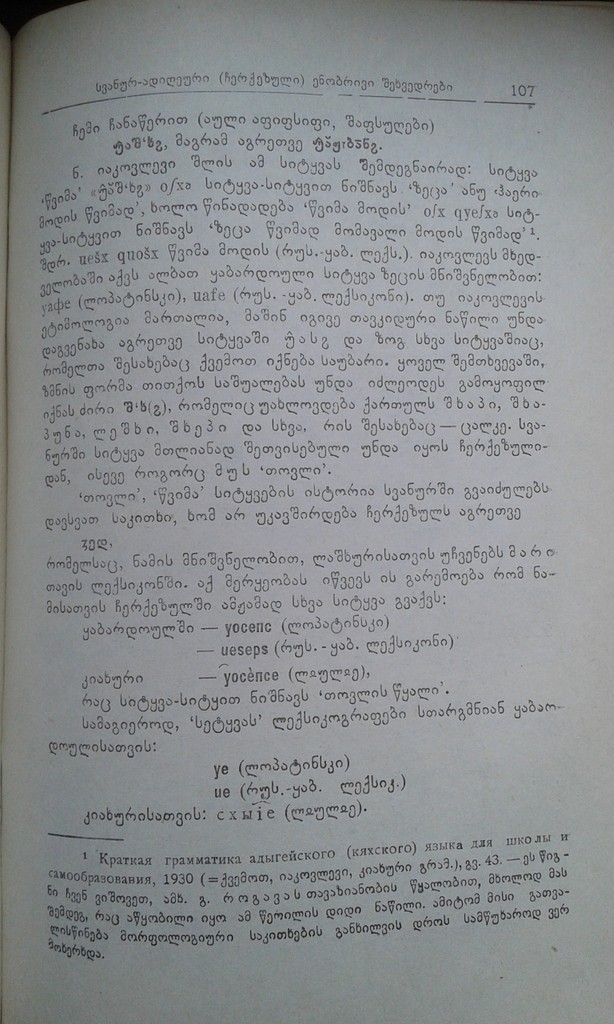 სვანურ-ადიღეური (ჩერქეზული) ენობრივი შეხვედრები 107
ჩემი ჩანაწერით (აული აფიფსიფი, შაფსუღები)
მაგრამ აგრეთვე
ნ. იაკოვლევი შლის ამ სიტყვას შემდეგნაირად: სიტყვა
'წვიმა' oʃxə სიტყვა-სიტყვით ნიშნავს 'ზეცა' ანუ 'ჰაერი
მოდის წვიმად', ხოლო წინადადება 'წვიმა მოდის' oʃx qyeʃxə სიტ-
ყვა-სიტყვით ნიშნავს 'ზეცა წვიმად მომავალი მოდის წვიმად'¹.
შდრ. uešx quošx წვიმა მოდის (რუს.-ყაბ. ლექს.). იაკოვლევს მხედ-
ველობაში აქვს ალბათ ყაბარდოული სიტყვა ზეცის მნიშვნელობით:
уафе (ლოპატინსკი), uafe (რუს. -ყაბ. ლექსიკონი). თუ იაკოვლევის
ეტიმოლოგია მართალია, მაშინ იგივე თავკიდური ნაწილი უნდა
დაგვენახა აგრეთვე სიტყვაში და ზოგ სხვა სიტყვაშიაც,
რომელთა შესახებაც ქვემოთ იქნება საუბარი. ყოველ შემთხვევაში,
ზმნის ფორმა თითქოს საშუალებას უნდა იძლეოდეს გამოყოფილ
იქნას ძირი რომელიც უახლოვდება ქართულს შხაპი, შხა-
პუნა, ლეშხი, შხეპი და სხვა, რის შესახებაც — ცალკე. სვა-
ნურში სიტყვა მთლიანად შეთვისებული უნდა იყოს ჩერქეზული-
დან, ისევე როგორც მუს 'თოვლი'.
'თოვლი', 'წვიმა' სიტყვების ისტორია სვანურში გვაიძულებს
დავსვათ საკითხი, ხომ არ უკავშირდება ჩერქეზულს აგრეთვე
რომელსაც, ნამის მნიშვნელობით, ლაშხურისათვის უჩვენებს მარი
თავის ლექსიკონში. აქ მერყეობას იწვევს ის გარემოება რომ ნა-
მისათვის ჩერქეზულში ამჟამად სხვა სიტყვა გვაქვს:
ყაბარდოულში — уосепс (ლოპატინსკი)
— ueseps (რუს. - ყაბ. ლექსიკონი)
კიახური — уосèпсе (ლჲულჲე),
რაც სიტყვა-სიტყით ნიშნავს 'თოვლის წყალი'.
სამაგიეროდ, 'სეტყვას' ლექსიკოგრაფები სთარგმნიან ყაბარ-
დოულისათვის:
уе (ლოპატინსკი)
ue (რუს.-ყაბ. ლექსიკ.)
კიახურისათვის: схыіе (ლჲულჲე).
¹ Краткая грамматика адыгейского (кяхского) языка для школы и
самообразования, 1930 (= ქვემოთ, იაკოვლევი, კიახური გრამ.), გვ. 43. — ეს წიგ-
ნი ჩვენ ვიშოვეთ, ამხ. გ. როგავას თავაზიანობის წყალობით, მხოლოდ მას
შემდეგ, რაც აწყობილი იყო ამ წერილის დიდი ნაწილი. ამიტომ მისი გათვა-
ლისწინება მორფოლოგიური საკითხების განხილვის დროს სამწუხაროდ ვერ
მოხერხდა.